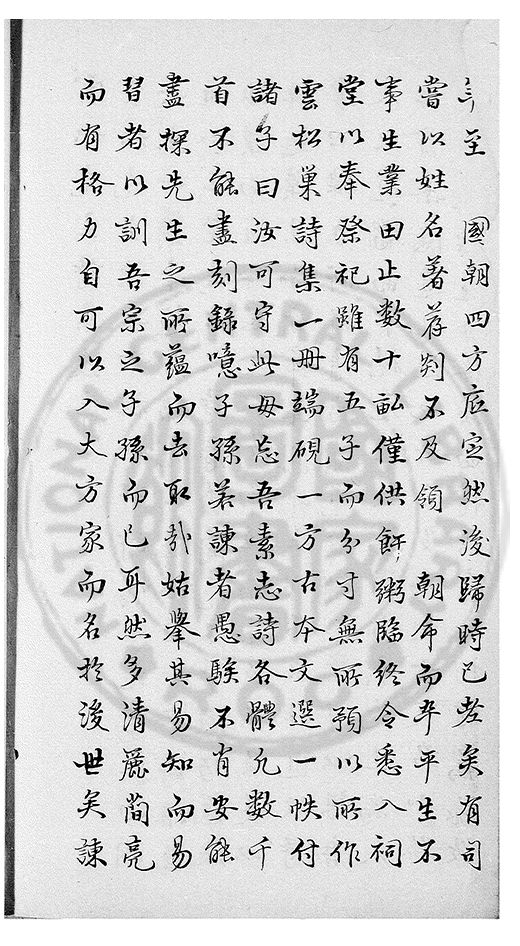 年至　國朝四方底定然後歸時已老矣有司
嘗以姓名著荐剡不及領　朝命而卒平生不
事生業田止数十畝僅供饘粥臨終令悉入祠
堂以奉祭祀雖有五子而分寸無所預以所作
雲松巢詩集一冊端硯一方古本文選一帙付
諸子曰汝可守此毋忘吾素志詩各體凡数千
首不能盡刻錄噫子孫若諫者愚騃不肖安能
盡探先生之所蘊而去取哉姑舉其易知而易
習者以訓吾宗之子孫而已耳然多清麗簡亮
而有格力自可以入大方家而名於後世矣諫
NATIONAL CENTRAL LIBRARY